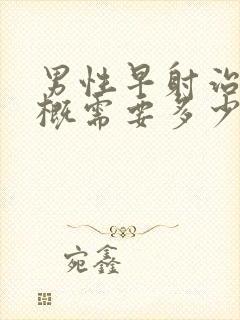 男性早射治
概需要多少
宛鑫